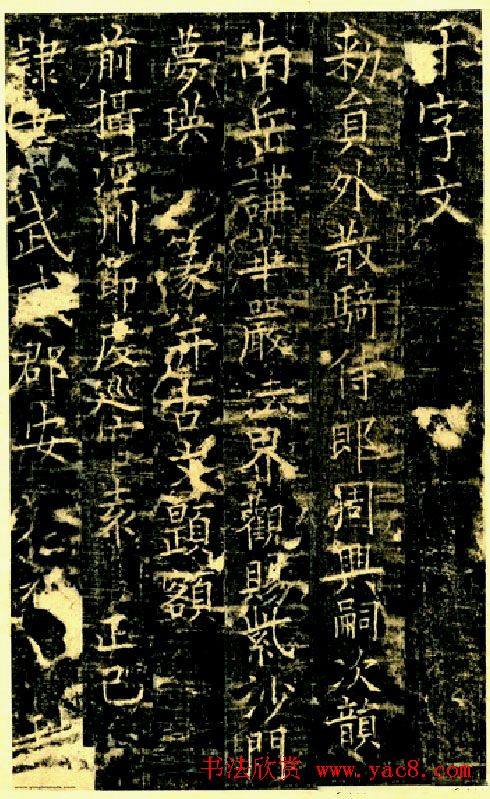 千字文
勑員外散騎侍郎周興嗣次韻
南岳講華嚴法界觀賜紫沙門
夢瑛 篆并古文題額
前攝涇州節度巡官袁 正己
隸書 武 郡安仁
书法欣赏 www.yac8.com